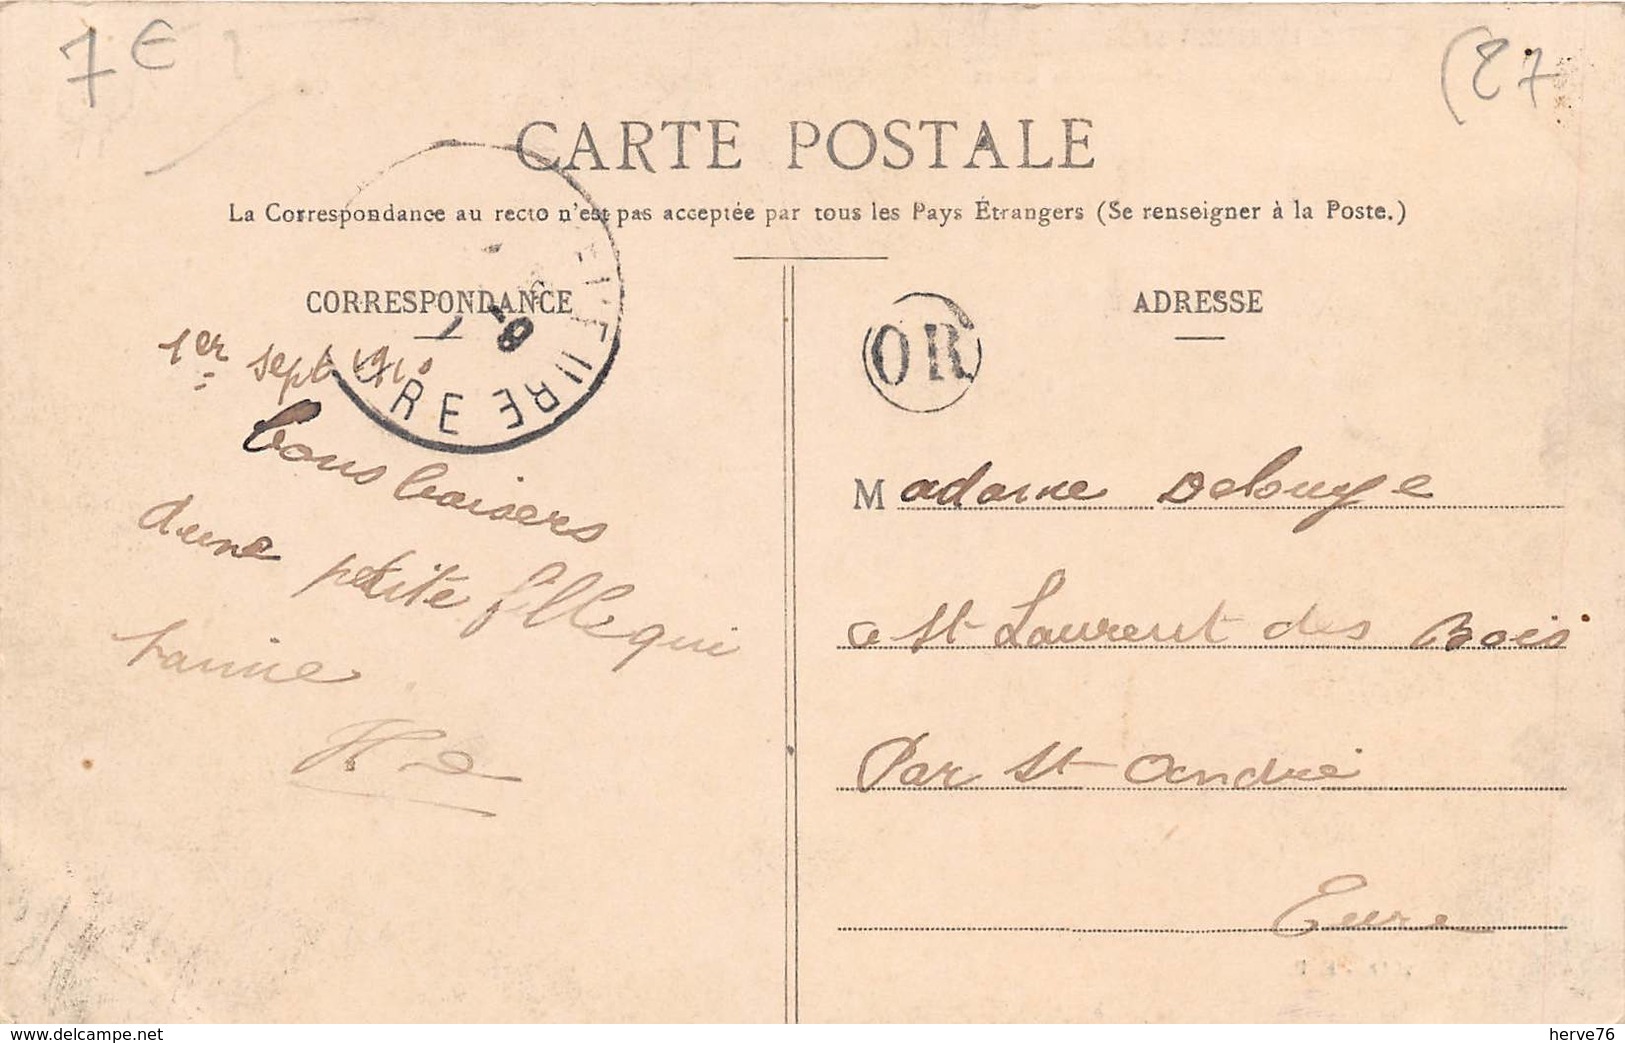 7 €
(27
CARTE POSTALE
La Correspondance au recto n'est pas acceptée par tous les Pays Étrangers (Se renseigner à la Poste.)
CORRESPONDANCE
1er sept 1910
bons baisers
dune petite fille qui
t'aime
ADRESSE
OR
Madame Delouye
a St Laurent des Bois
Par St andré
Eure
EURE
www.delcampe.net
herve76